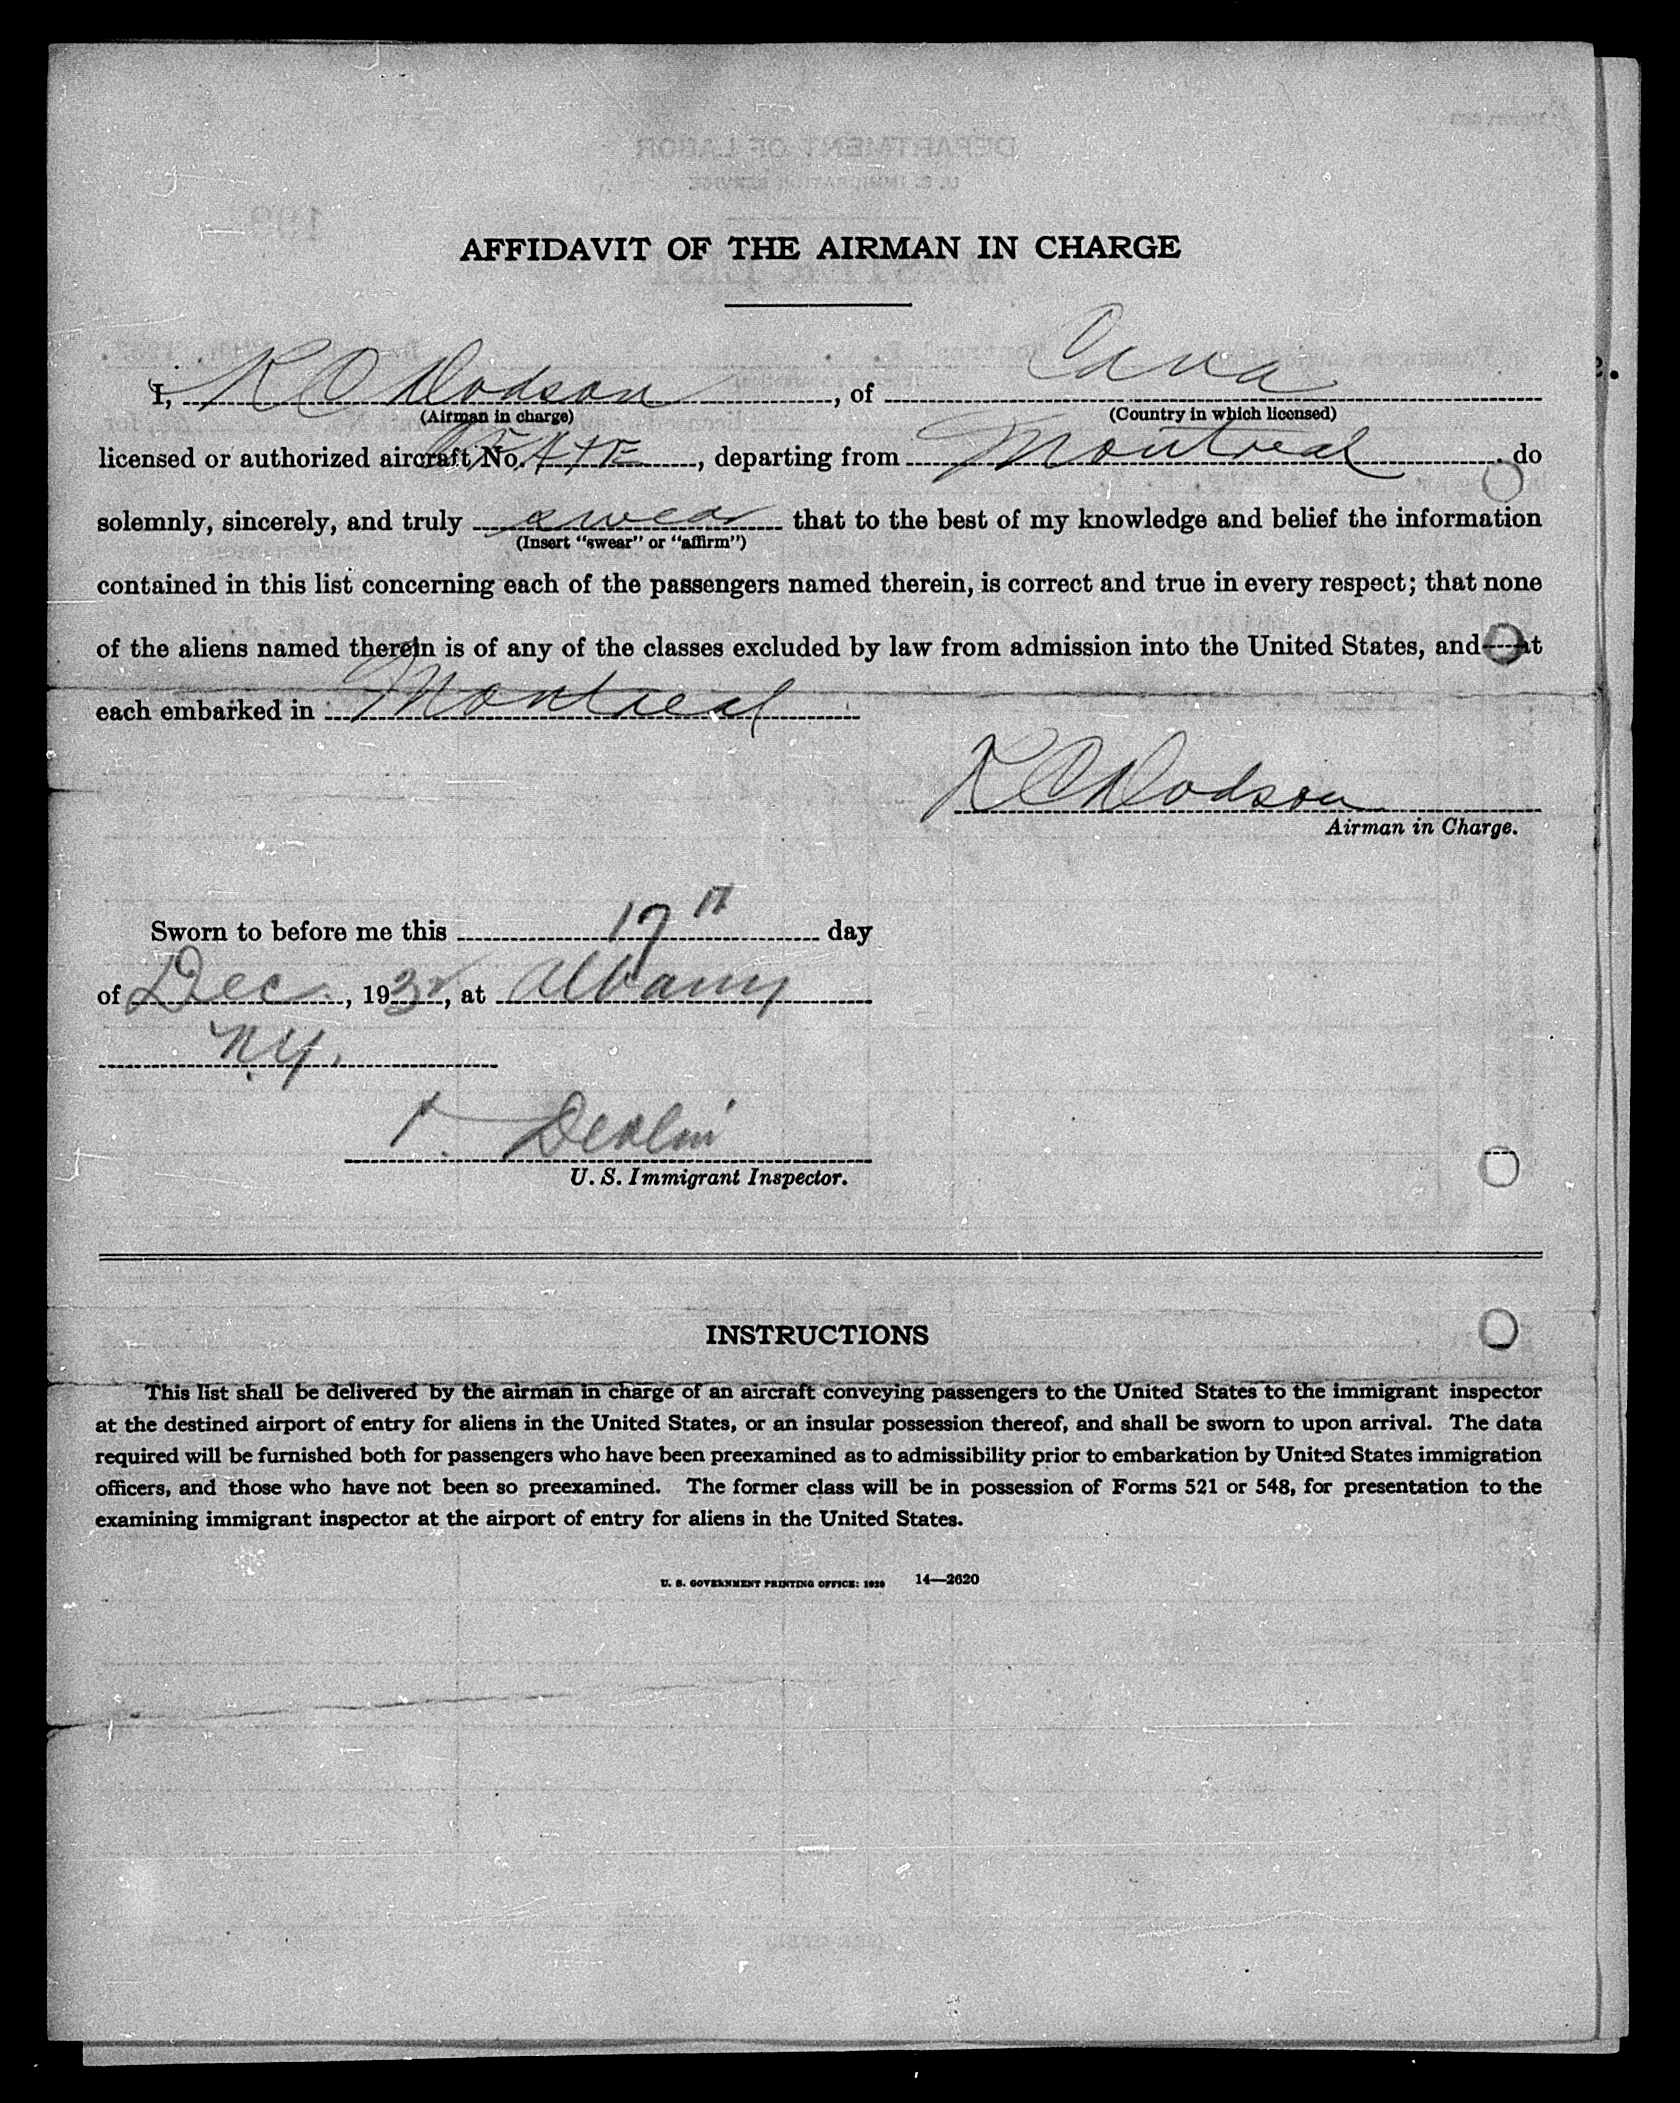 AFFIDAVIT OF THE AIRMAN IN CHARGE
I, K C Dodson, of Cana
(Airman in charge) (Country in which licensed)
licensed or authorized aircraft No., departing from Montreal, do
solemnly, sincerely, and truly swear that to the best of my knowledge and belief the information
(Insert “swear” or “affirm”)
contained in this list concerning each of the passengers named therein, is correct and true in every respect; that none
of the aliens named therein is of any of the classes excluded by law from admission into the United States, and
each embarked in Montreal
K C Dodson
Airman in Charge.
Sworn to before me this 17th day
of Dec., 1932, at Albany
N.Y.
Devlin
U. S. Immigrant Inspector.
INSTRUCTIONS
This list shall be delivered by the airman in charge of an aircraft conveying passengers to the United States to the immigrant inspector
at the destined airport of entry for aliens in the United States, or an insular possession thereof, and shall be sworn to upon arrival. The data
required will be furnished both for passengers who have been preexamined as to admissibility prior to embarkation by United States immigration
officers, and those who have not been so preexamined. The former class will be in possession of Forms 521 or 548, for presentation to the
examining immigrant inspector at the airport of entry for aliens in the United States.
U. S. GOVERNMENT PRINTING OFFICE: 1929 14—2620